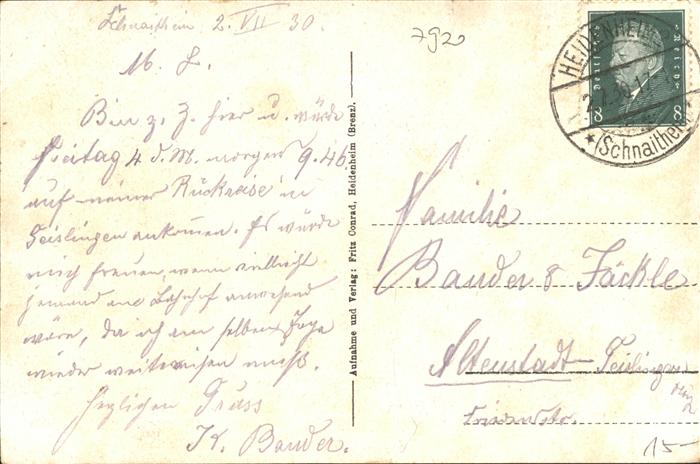 Schnaitheim 2. VII 30.
M. L.
Bin z. Z. hier u. würde
Freitag 4 d. M. morgens 9.46
auf meiner Rückreise in
Geislingen ankommen. Es würde
mich freuen, wenn vielleicht
jemand am Bahnhof anwesend
wäre, da ich am selben Tage
wieder weiterreisen muß.
Herzlichen Gruss
K. Bauder.
Aufnahme und Verlag: Fritz Conrad, Heidenheim (Brenz).
7920
HEIDENHEIM
2.7.30.
*(Schnaitheim)
Deutsches Reich
8 8
Familie
Bauder & Jäckle
Altenstadt-Geislingen
Friedrichstr.
15-